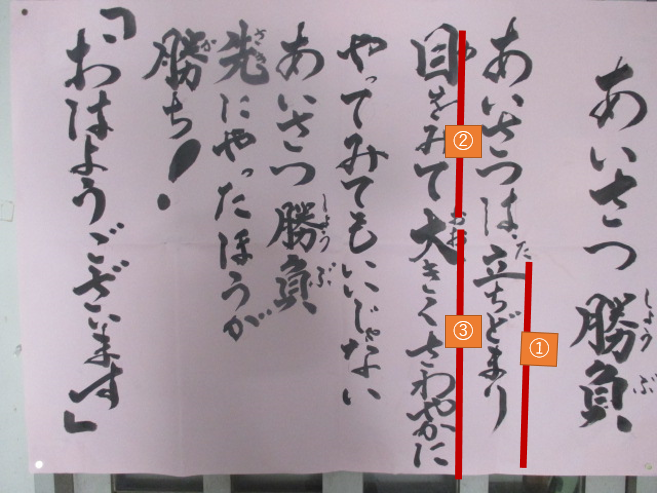 あいさつ勝負
しょうぶ
あいさつは立ちどまり
た
①
目をみて大きくさわやかに
め
おお
②
③
やってみてもいいじゃない
あいさつ勝負
しょうぶ
先にやったほうが
さき
勝ち!
か
「おはようございます」